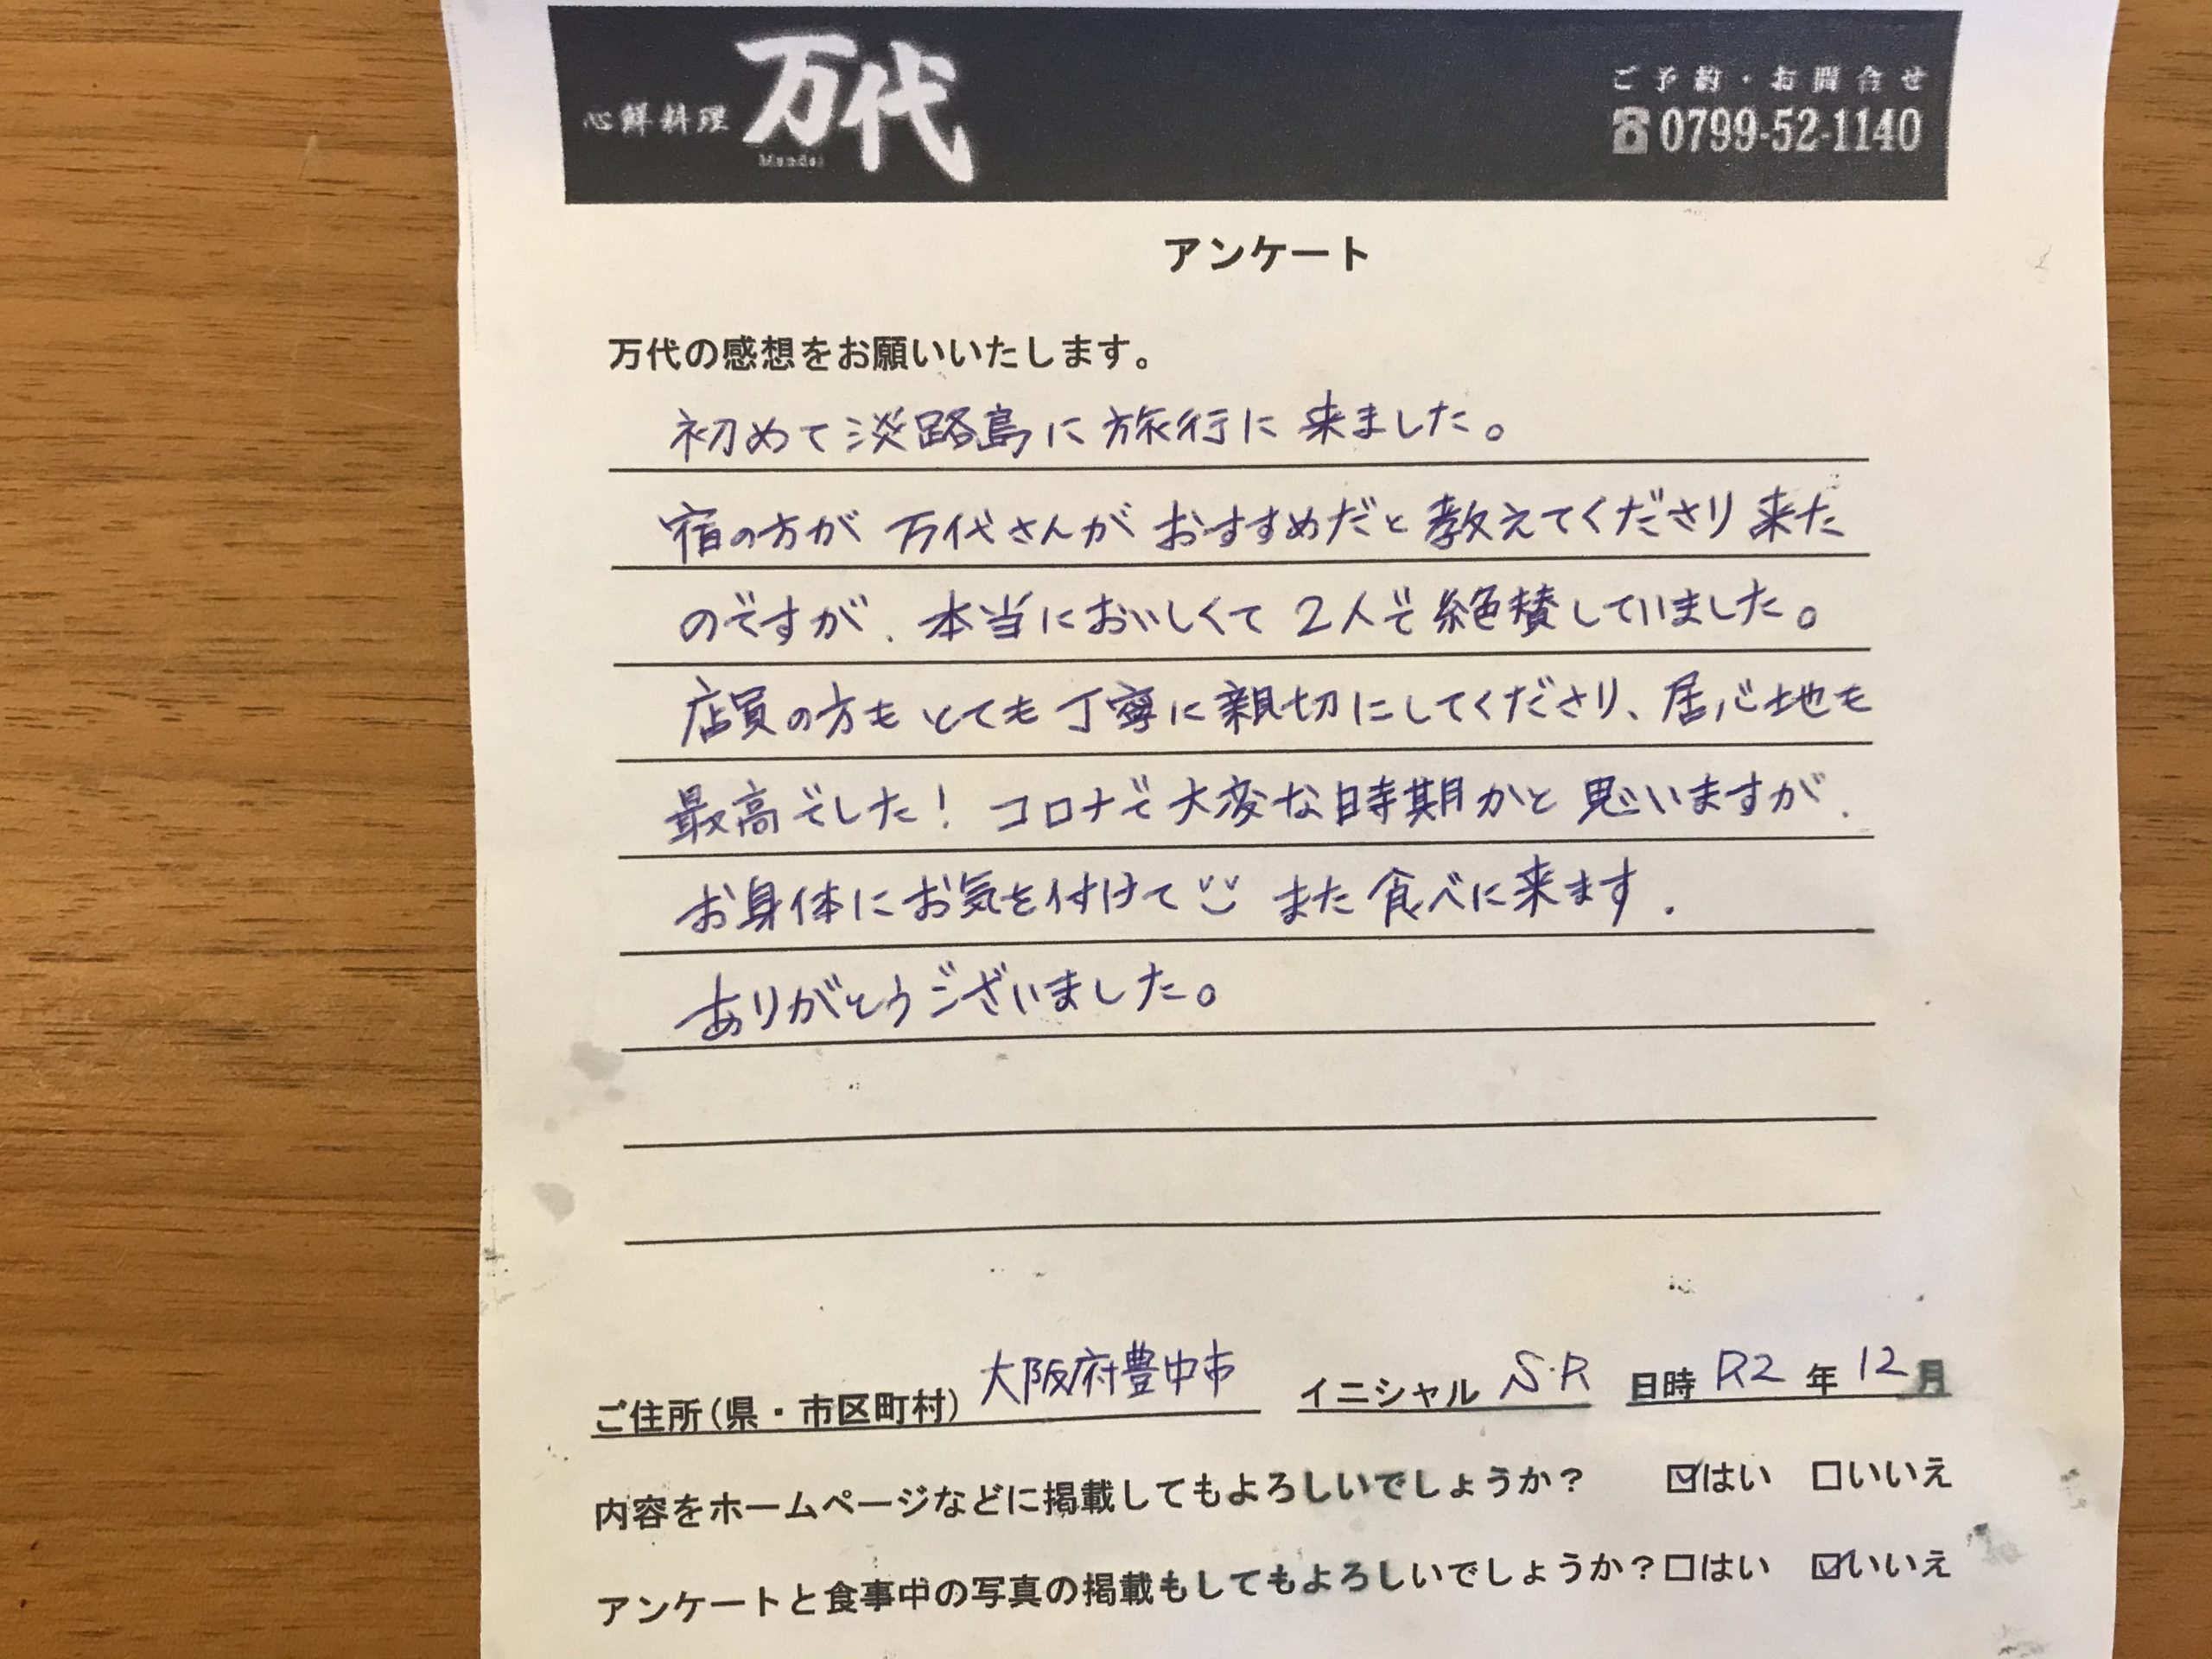 心鮮料理 万代
Mandai
ご予約・お問合せ
☎0799-52-1140
アンケート
万代の感想をお願いいたします。
初めて淡路島に旅行に来ました。
宿の方が 万代さんが おすすめだと 教えてくださり 来た
のですが、本当においしくて 2人で 絶賛していました。
店員の方も とても 丁寧に親切にしてくださり、居心地も
最高でした! コロナで大変な時期かと 思いますが、
お身体にお気を付けて また 食べに来ます.
ありがとうございました。
ご住所(県・市区町村) 大阪府豊中市 イニシャル S・R 日時 R2 年 12月
内容をホームページなどに掲載してもよろしいでしょうか? ☑はい □いいえ
アンケートと食事中の写真の掲載もしてもよろしいでしょうか?□はい ☑いいえ